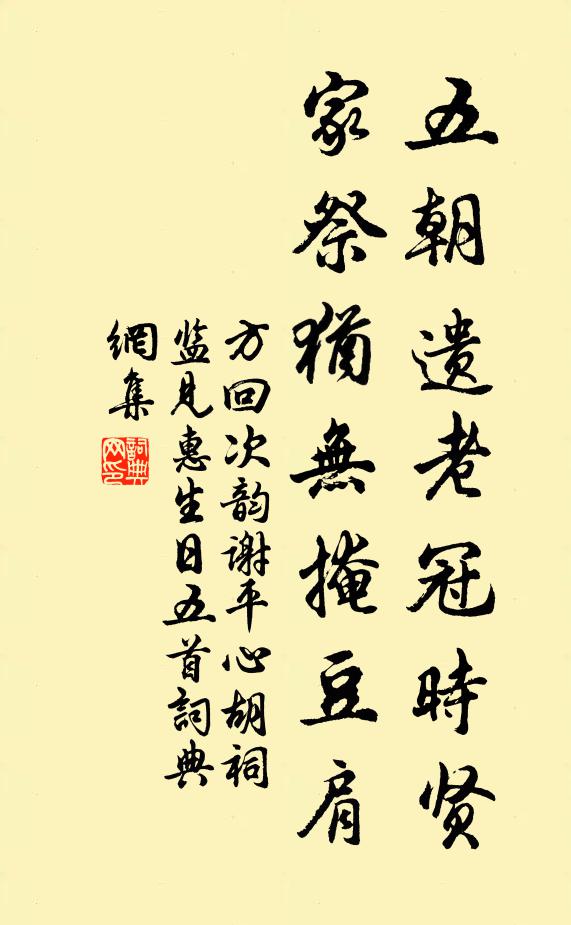 五朝遗老冠時贤
家祭猶無掩豆肩
方回次韵谢平心胡祠
监见惠生日五首詞典
網集
詞典網印